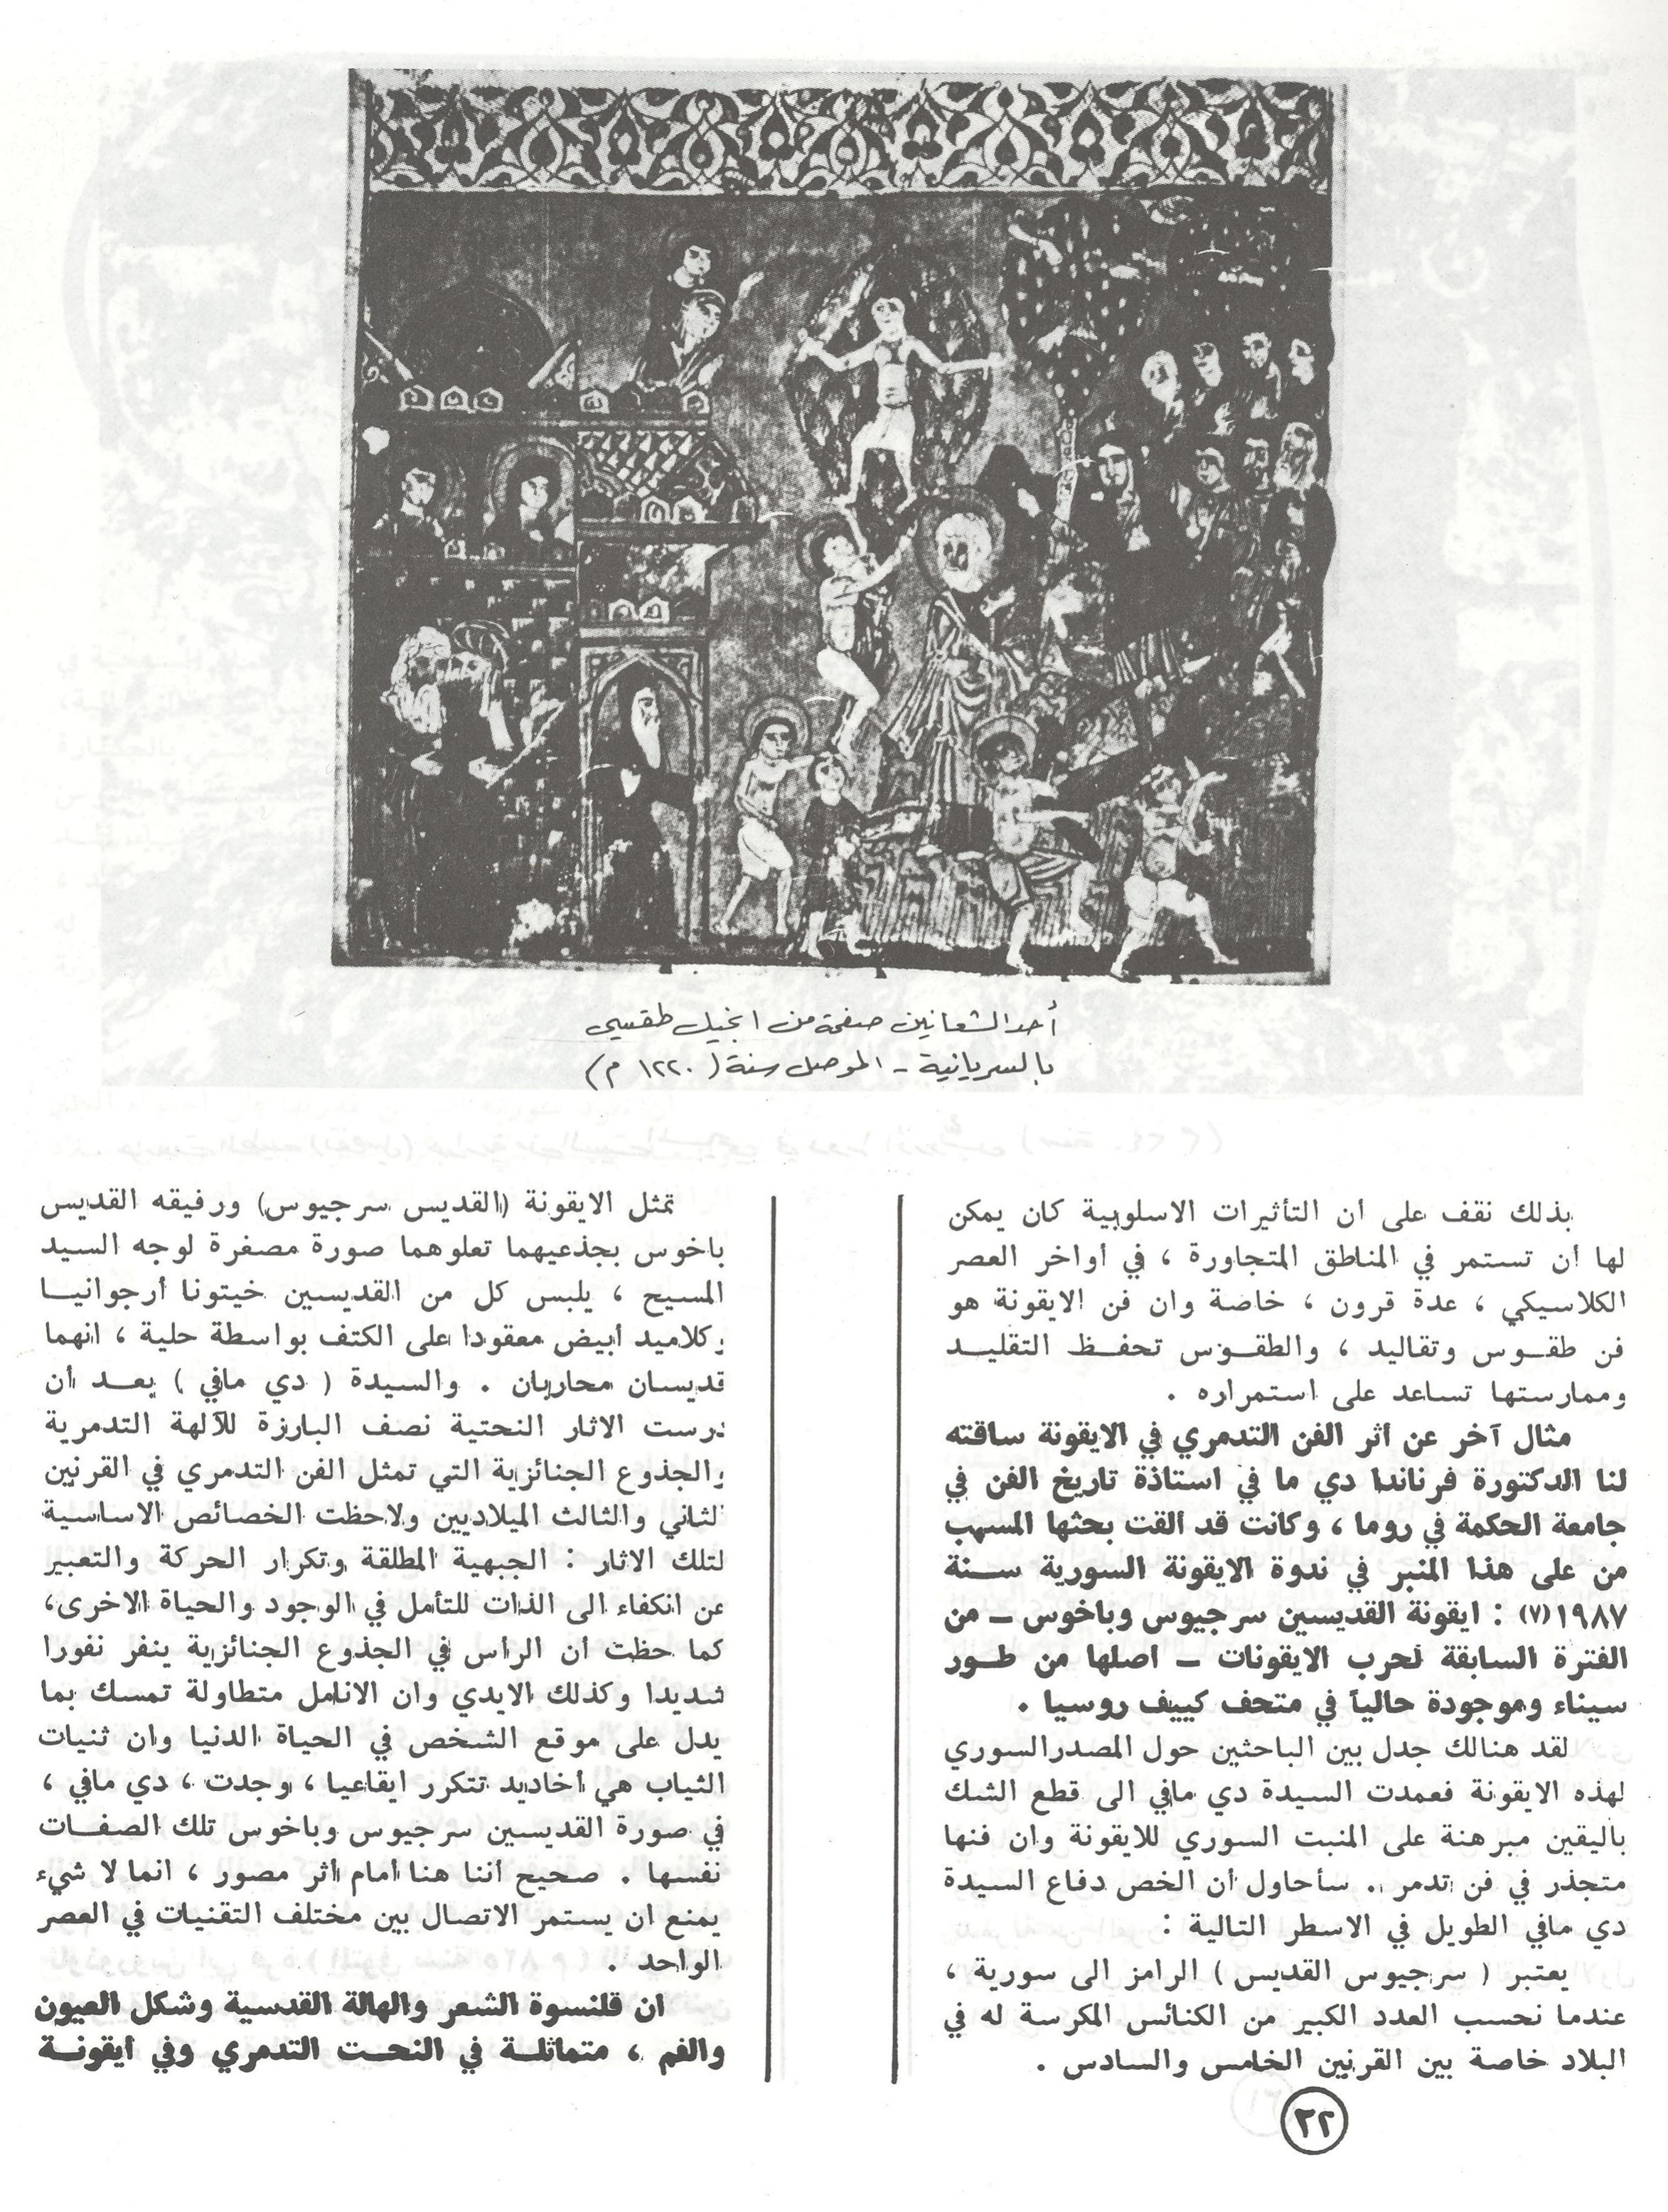 أحد الشعانين صفحة من انجيل طقسي
بالسريانية - الموصل سنة (١٢٢٠ م)
بذلك نقف على أن التأثيرات الاسلوبية كان يمكن
لها أن تستمر في المناطق المتجاورة ، في أواخر العصر
الكلاسيكي ، عدة قرون ، خاصة وان فن الايقونة هو
فن طقوس وتقاليد ، والطقوس تحفظ التقليد
وممارستها تساعد على استمراره .
مثال آخر عن أثر الفن التدمري في الايقونة ساقته
لنا الدكتورة فرناندا دي ما في استاذة تاريخ الفن في
جامعة الحكمة في روما ، وكانت قد القت بحثها المسهب
من على هذا المنبر في ندوة الايقونة السورية سنة
١٩٨٧(٧) : ايقونة القديسين سرجيوس وباخوس – من
الفترة السابقة لحرب الايقونات – اصلها من طور
سيناء وموجودة حالياً في متحف كييف روسيا .
لقد هنالك جدل بين الباحثين حول المصدر السوري
لهذه الايقونة فعمدت السيدة دي مافي الى قطع الشك
باليقين مبرهنة على المنبت السوري للايقونة وان فنها
متجذر في فن تدمر .. سأحاول أن الخص دفاع السيدة
دي مافي الطويل في الاسطر التالية :
يعتبر ( سرجيوس القديس ) الرامز الى سورية ،
عندما نحسب العدد الكبير من الكنائس المكرسة له في
البلاد خاصة بين القرنين الخامس والسادس .
تمثل الايقونة (القديس سرجيوس) ورفيقه القديس
باخوس بجذعيهما تعلوهما صورة مصغرة لوجه السيد
المسيح ، يلبس كل من القديسين خيتونا أرجوانيا
وكلاميد ابيض معقودا على الكتف بواسطة حلية ، انهما
قديسان محاربان . والسيدة ( دي مافي ) بعد أن
درست الاثار النحتية نصف البارزة للآلهة التدمرية
والجذوع الجنائزية التي تمثل الفن التدمري في القرنين
الثاني والثالث الميلاديين ولاحظت الخصائص الاساسية
لتلك الاثار : الجبهية المطلقة وتكرار الحركة والتعبير
عن انكفاء الى الذات للتأمل في الوجود والحياة الاخرى،
كما حظت أن الرأس في الجذوع الجنائزية ينفر نفورا
شديدا وكذلك الايدي وان الانامل متطاولة تمسك بما
يدل على موقع الشخص في الحياة الدنيا وان ثنيات
الثياب هي أخاديد تتكرر ايقاعيا ، وجدت ، دي مافي ،
في صورة القديسين سرجيوس وباخوس تلك الصفات
نفسها . صحيح أننا هنا أمام أثر مصور ، انما لا شيء
يمنع ان يستمر الاتصال بين مختلف التقنيات في العصر
الواحد .
ان قلنسوة الشعر والهالة القدسية وشكل العيون
والفم ، متماثلة في النحت التدمري وفي ايقونة
٣٢